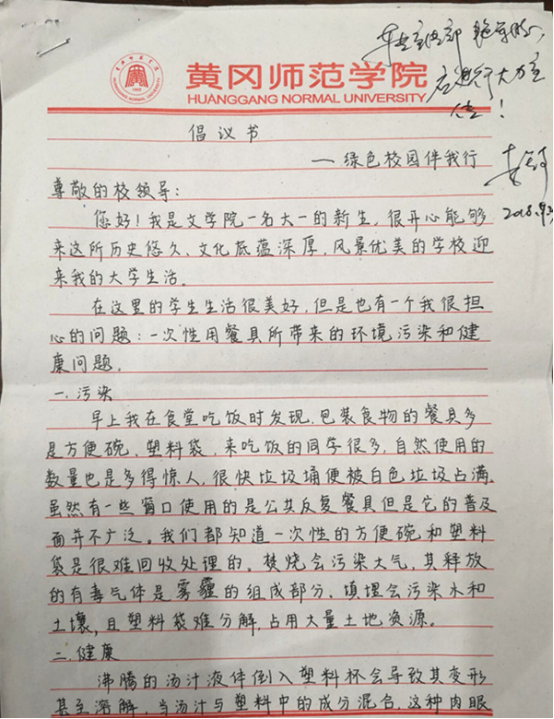 黄冈师范学院
HUANGGANG NORMAL UNIVERSITY
倡议书
——绿色校园伴我行
尊敬的校领导：
您好！我是文学院一名大一的新生，很开心能够
来这所历史悠久、文化底蕴深厚，风景优美的学校迎
来我的大学生活。
在这里的学生生活很美好，但是也有一个我很担
心的问题：一次性用餐具所带来的环境污染和健
康问题。
一.污染
早上我在食堂吃饭时发现，包装食物的餐具多
是方便碗，塑料袋，来吃饭的同学很多，自然使用的
数量也是多得惊人，很快垃圾埇便被白色垃圾占满。
虽然有一些窗口使用的是公共反复餐具但是它的普及
面并不广泛。我们都知道一次性的方便碗和塑料
袋是很难回收处理的。焚烧会污染大气，其释放
的有毒气体是雾霾的组成部分，填埋会污染水和
土壤，且塑料袋难分解，占用大量土地资源。
二.健康
沸腾的汤汁液体倒入塑料杯会导致其变形
甚至溶解，当汤汁与塑料中的成分混合，这种肉眼